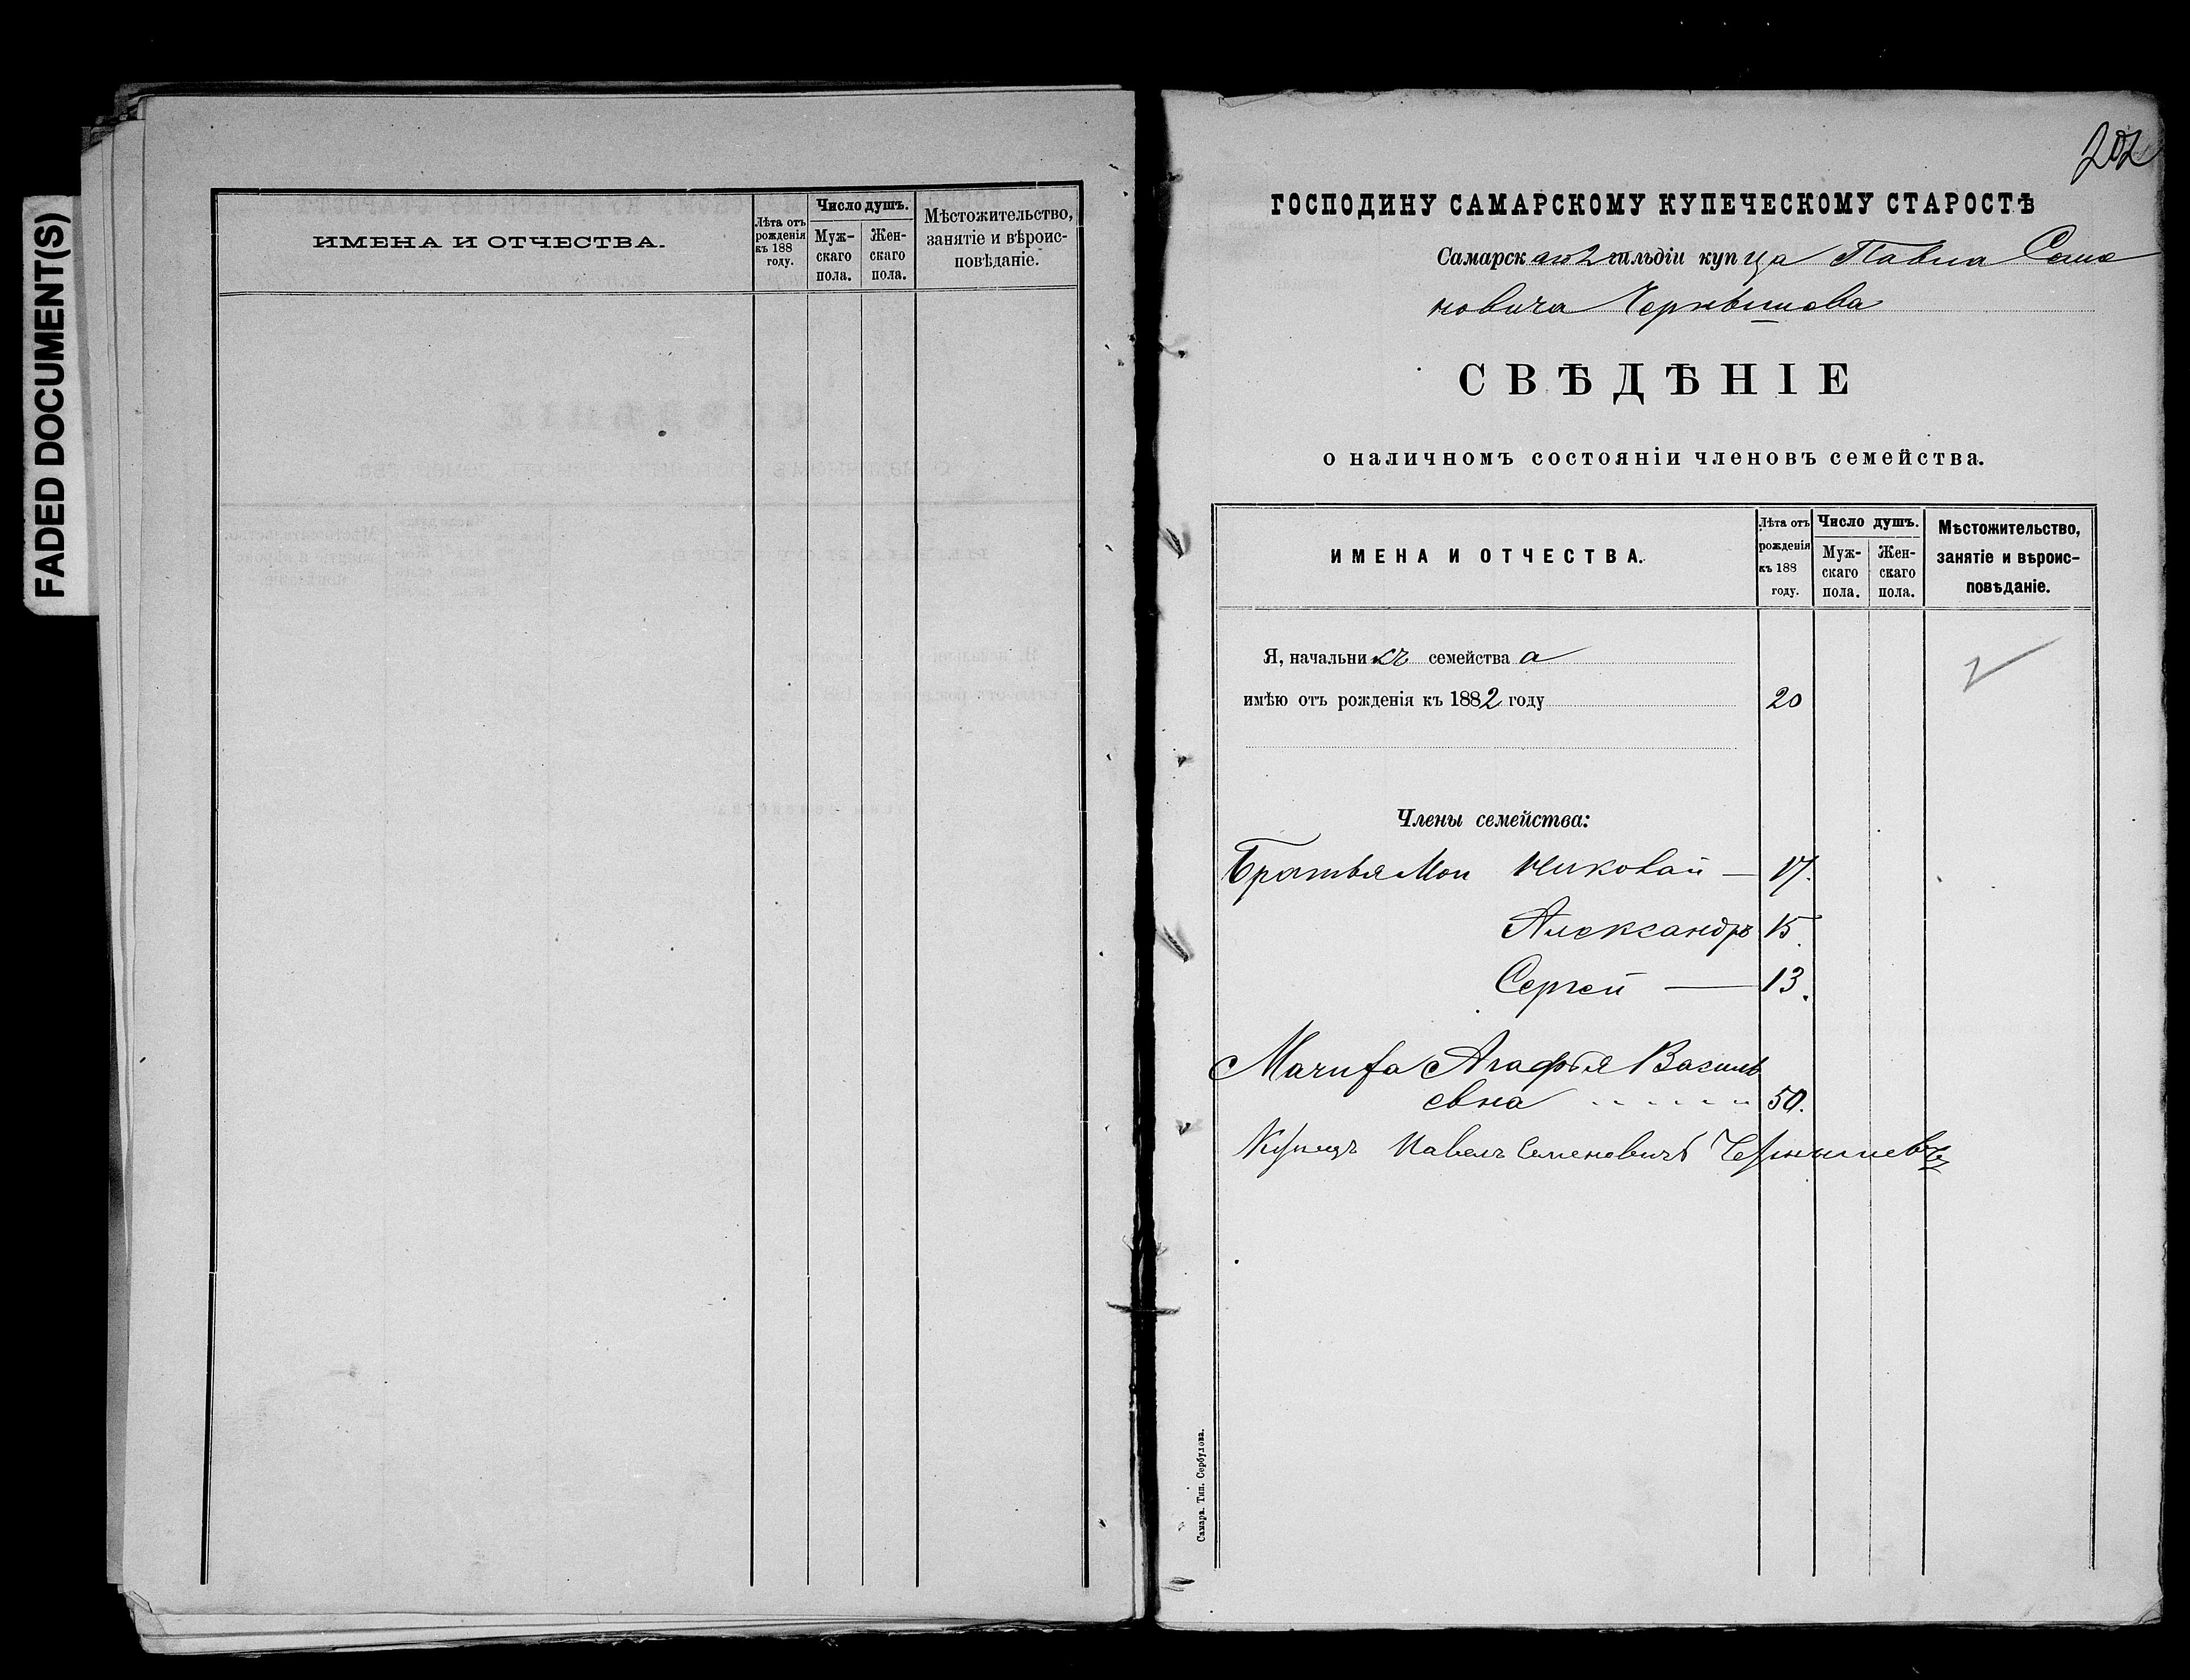 FADED DOCUMENT(S)
ИМЕНА И ОТЧЕСТВА.
Лѣта отъ рожденія къ 188 году.
Число душъ.
Муж-скаго пола.
Жен-скаго пола.
Мѣстожительство, занятіе и вѣроис-повѣданіе.
202
ГОСПОДИНУ САМАРСКОМУ КУПЕЧЕСКОМУ СТАРОСТѢ
Самарскаго 2 гильдіи купца Павла Семе
новича Чернышова
СВѢДѢНІЕ
о наличномъ состояніи членовъ семейства.
ИМЕНА И ОТЧЕСТВА.
Лѣта отъ рожденія къ 188 году.
Число душъ.
Муж-скаго пола.
Жен-скаго пола.
Мѣстожительство, занятіе и вѣроис-повѣданіе.
Я, начальникъ семейства
имѣю отъ рожденія къ 1882 году 20
Члены семейства:
Братья Мои Николай — 17.
Александръ 15.
Сергей — 13.
Агафья Василь
евна 50.
Купецъ Павелъ Семеновичъ Чернышевъ
Самара. Тип. Сербулова.